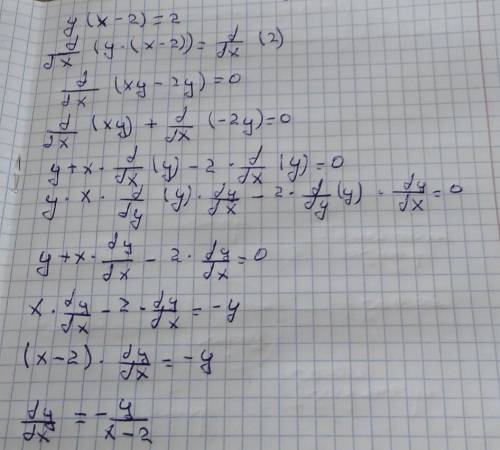 y (x-2)=2
d/dx (y·(x-2))= d/dx (2)
d/dx (xy-2y)=0
d/dx (xy) + d/dx (-2y)=0
y+x· d/dx (y)-2· d/dx (y)=0
y· x· d/dy (y)· dy/dx -2· d/dy (y) · dy/dx =0
y+x· dy/dx - 2· dy/dx =0
x· dy/dx -2· dy/dx = -y
(x-2)· dy/dx = -y
dy/dx = - y/x-2